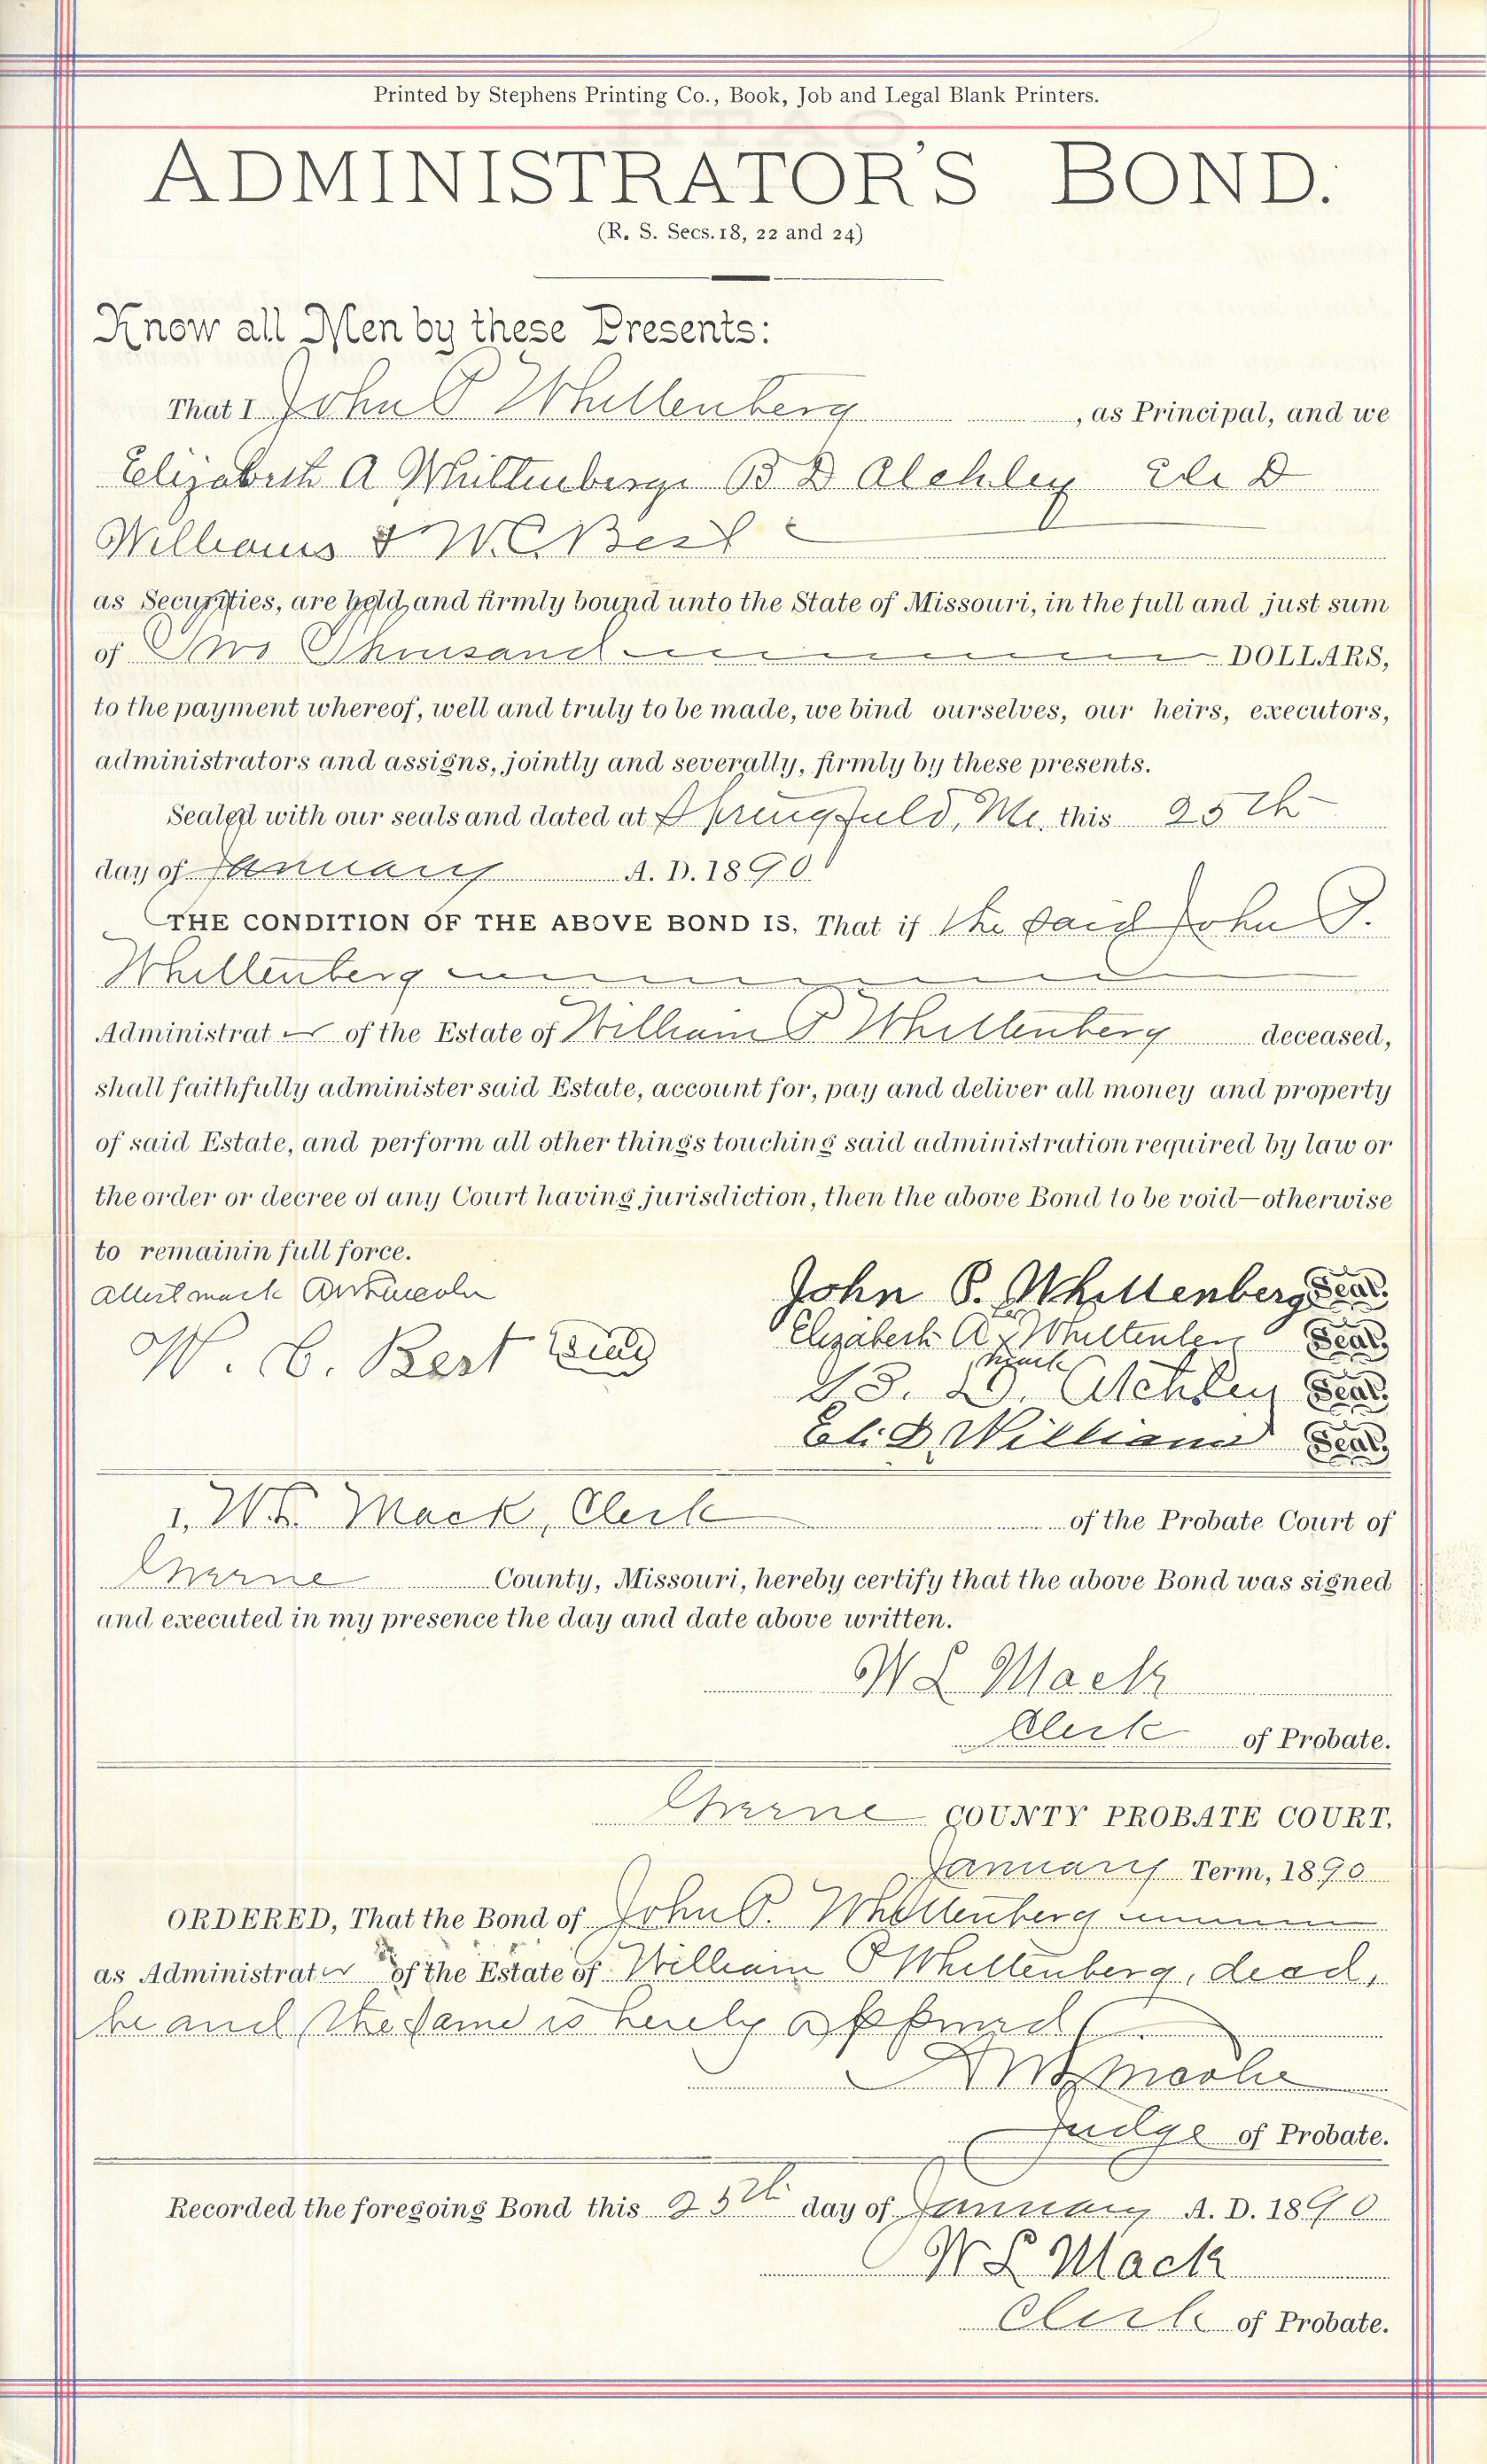 Printed by Stephens Printing Co., Book, Job and Legal Blank Printers.
ADMINISTRATOR'S BOND.
(R. S. Secs. 18, 22 and 24)
Know all Men by these Presents:
That I John P Whittenberg , as Principal, and we
Elizabeth A Whittenberge B D Atchley Eli D
Williams & W.C. Best
as Securities, are held and firmly bound unto the State of Missouri, in the full and just sum
of Two Thousand DOLLARS,
to the payment whereof, well and truly to be made, we bind ourselves, our heirs, executors,
administrators and assigns, jointly and severally, firmly by these presents.
Sealed with our seals and dated at Springfield, Mo. this 25th
day of January A. D. 1890
THE CONDITION OF THE ABOVE BOND IS, That if the said John P.
Whittenberg
Administrator of the Estate of William P Whittenberg deceased,
shall faithfully administer said Estate, account for, pay and deliver all money and property
of said Estate, and perform all other things touching said administration required by law or
the order or decree of any Court having jurisdiction, then the above Bond to be void—otherwise
to remainin full force.
Attest mark AW Lincoln John P. Whittenberg Seal.
Elizabeth A x Whittenberg Seal.
mark
W. C. Best Seal B. D. Atchley Seal.
Eli D Williams Seal.
I, W.L. Mack, Clerk of the Probate Court of
Greene County, Missouri, hereby certify that the above Bond was signed
and executed in my presence the day and date above written.
W L Mack
Clerk of Probate.
Greene COUNTY PROBATE COURT,
January Term, 1890
ORDERED, That the Bond of John P. Whittenberg
as Administrator of the Estate of William P Whittenberg, decd,
be and the same is hereby approved
AW Lincoln
Judge of Probate.
Recorded the foregoing Bond this 25th day of January A. D. 1890
W L Mack
Clerk of Probate.